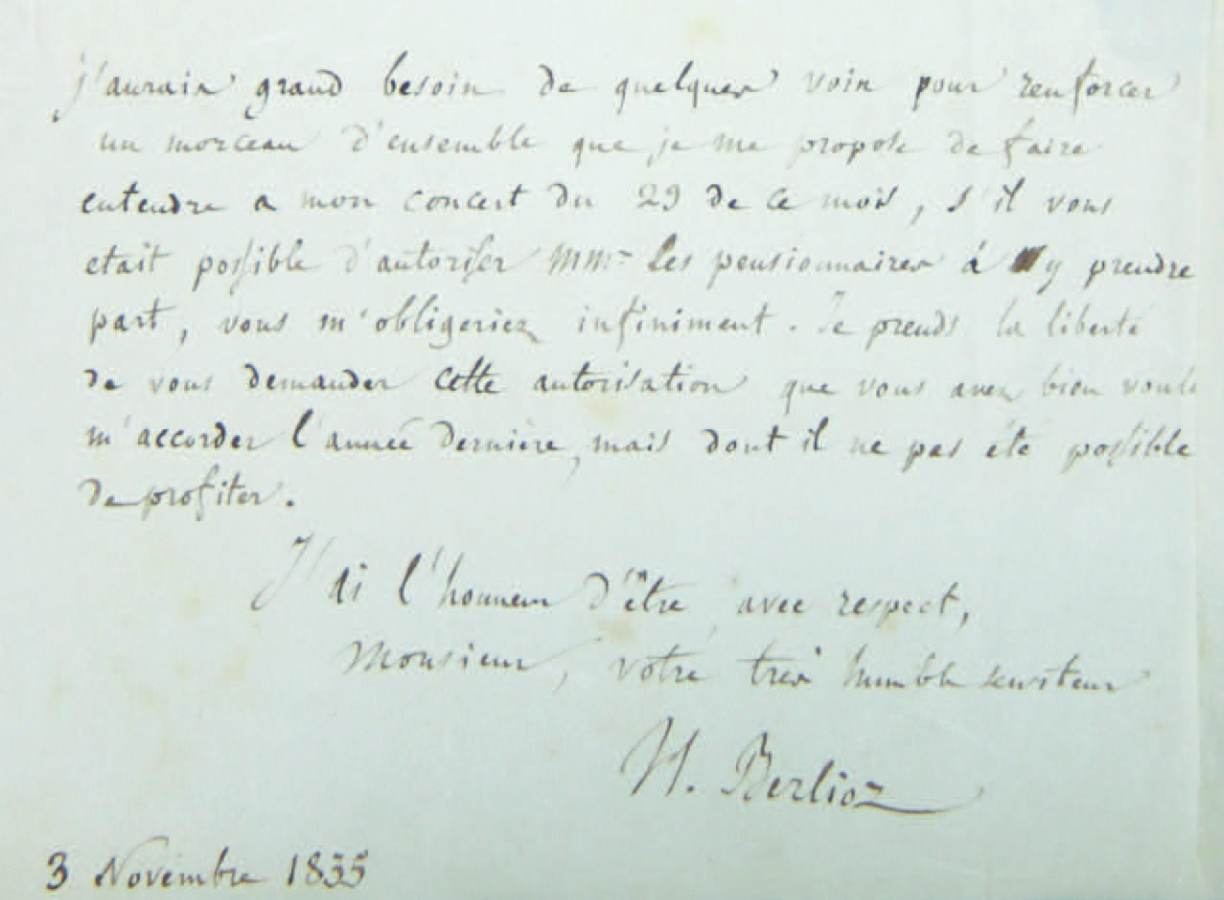 j'aurais grand besoin de quelques voix pour renforcer
un morceau d'ensemble que je me propose de faire
entendre a mon concert du 29 de ce mois, s'il vous
etait possible d'autoriser MM. les pensionnaires à y prendre
part, vous m'obligeriez infiniment. Je prends la liberté
de vous demander cette autorisation que vous avez bien voulu
m'accorder l'année dernière, mais dont il ne pas été possible
de profiter.
J'ai l'honneur d'être avec respect,
Monsieur, votre très humble serviteur
H. Berlioz
3 Novembre 1835